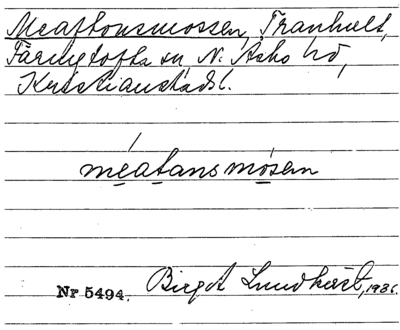 Meaftonsmossen, Tranhult,
Färingtofta sn, N. Åsbo hd,
Kristianstads l.
méatans mósen
Nr 5494. Birgit Lundkvist, 1936.